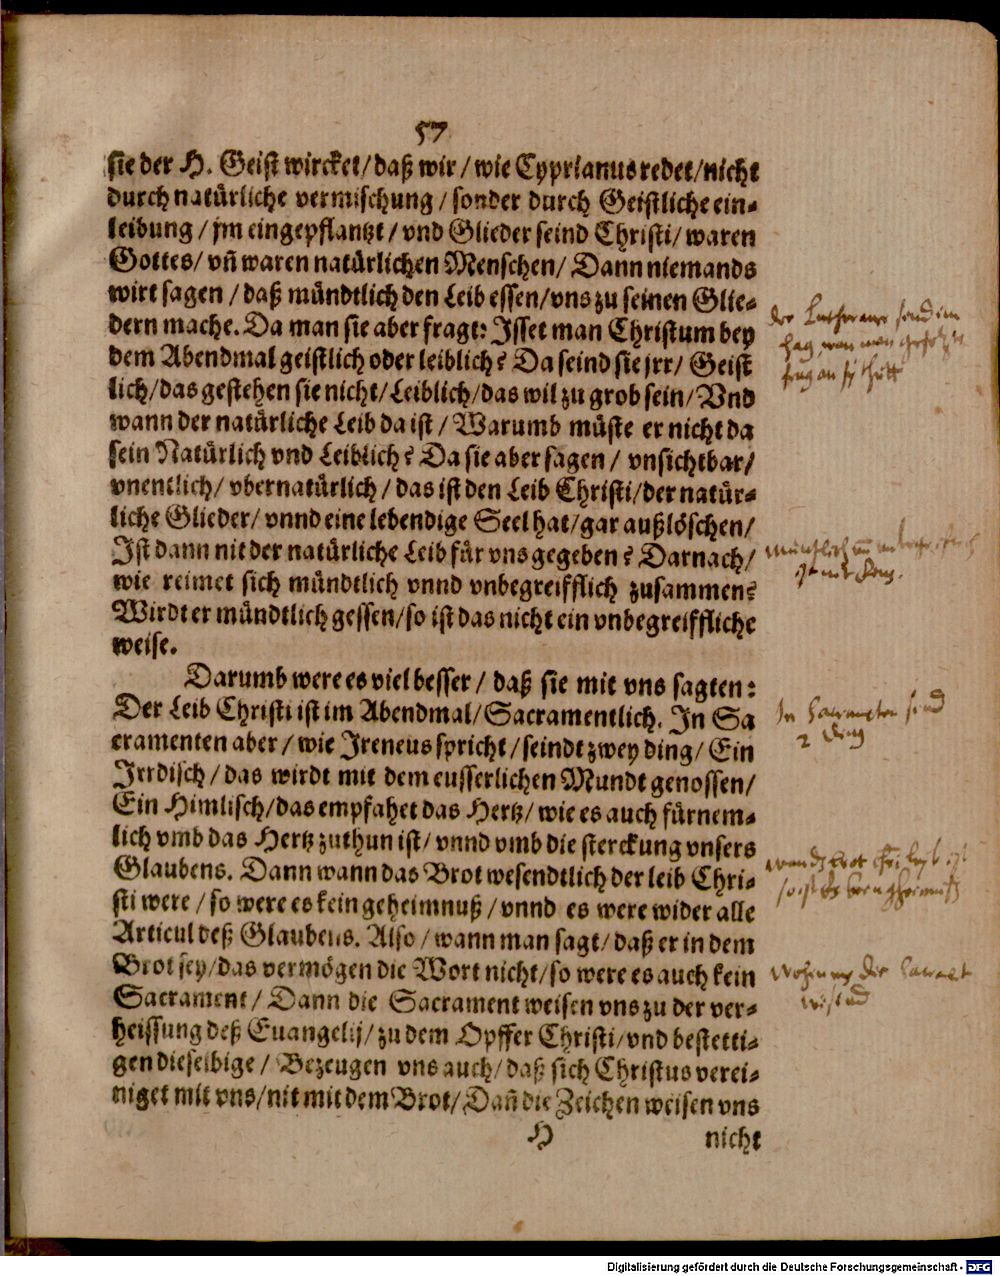 57
sie der H. Geist wircket/ daß wir / wie Cyprianus redet/ nicht
durch natürliche vermischung / sonder durch Geistliche ein-
leibung / jm eingepflantzt / vnd Glieder seind Christi/ waren
Gottes/ vñ waren natürlichen Menschen/ Dann niemands
wirt sagen / daß mündtlich den Leib essen/ vns zu seinen Glie-
dern mache. Da man sie aber fragt: Isset man Christum bey
dem Abendmal geistlich oder leiblich? Da seind sie jrr/ Geist
lich/ das gestehen sie nicht/ Leiblich/ das wil zu grob sein/ Vnd
wann der natürliche Leib da ist / Warumb müste er nicht da
sein Natürlich vnd Leiblich? Da sie aber sagen / vnsichtbar/
vnentlich/ vbernatürlich / das ist den Leib Christi/ der natür-
liche Glieder/ vnnd eine lebendige Seel hat/ gar außlöschen/
Ist dann nit der natürliche Leib für vns gegeben? Darnach/
wie reimet sich mündtlich vnnd vnbegreifflich zusammen?
Wirdt er mündtlich gessen/ so ist das nicht ein vnbegreiffliche
weise.
Darumb were es viel besser / daß sie mit vns sagten:
Der Leib Christi ist im Abendmal/ Sacramentlich. In Sa
cramenten aber / wie Ireneus spricht / seindt zwey ding/ Ein
Irrdisch / das wirdt mit dem eusserlichen Mundt genossen/
Ein Himlisch/ das empfahet das Hertz/ wie es auch fürnem-
lich vmb das Hertz zuthun ist/ vnnd vmb die sterckung vnsers
Glaubens. Dann wann das Brot wesendtlich der leib Chri-
sti were / so were es kein geheimnuß / vnnd es were wider alle
Articul deß Glaubens. Also / wann man sagt/ daß er in dem
Brot sey/ das vermögen die Wort nicht/ so were es auch kein
Sacrament / Dann die Sacrament weisen vns zu der ver-
heissung deß Euangelij/ zu dem Opffer Christi/ vnd bestetti-
gen dieselbige / Bezeugen vns auch/ daß sich Christus verei-
niget mit vns/ nit mit dem Brot/ Dañ die Zeichen weisen vns
H nicht
In sind
2 ding
Digitalisierung gefördert durch die Deutsche Forschungsgemeinschaft - DFG